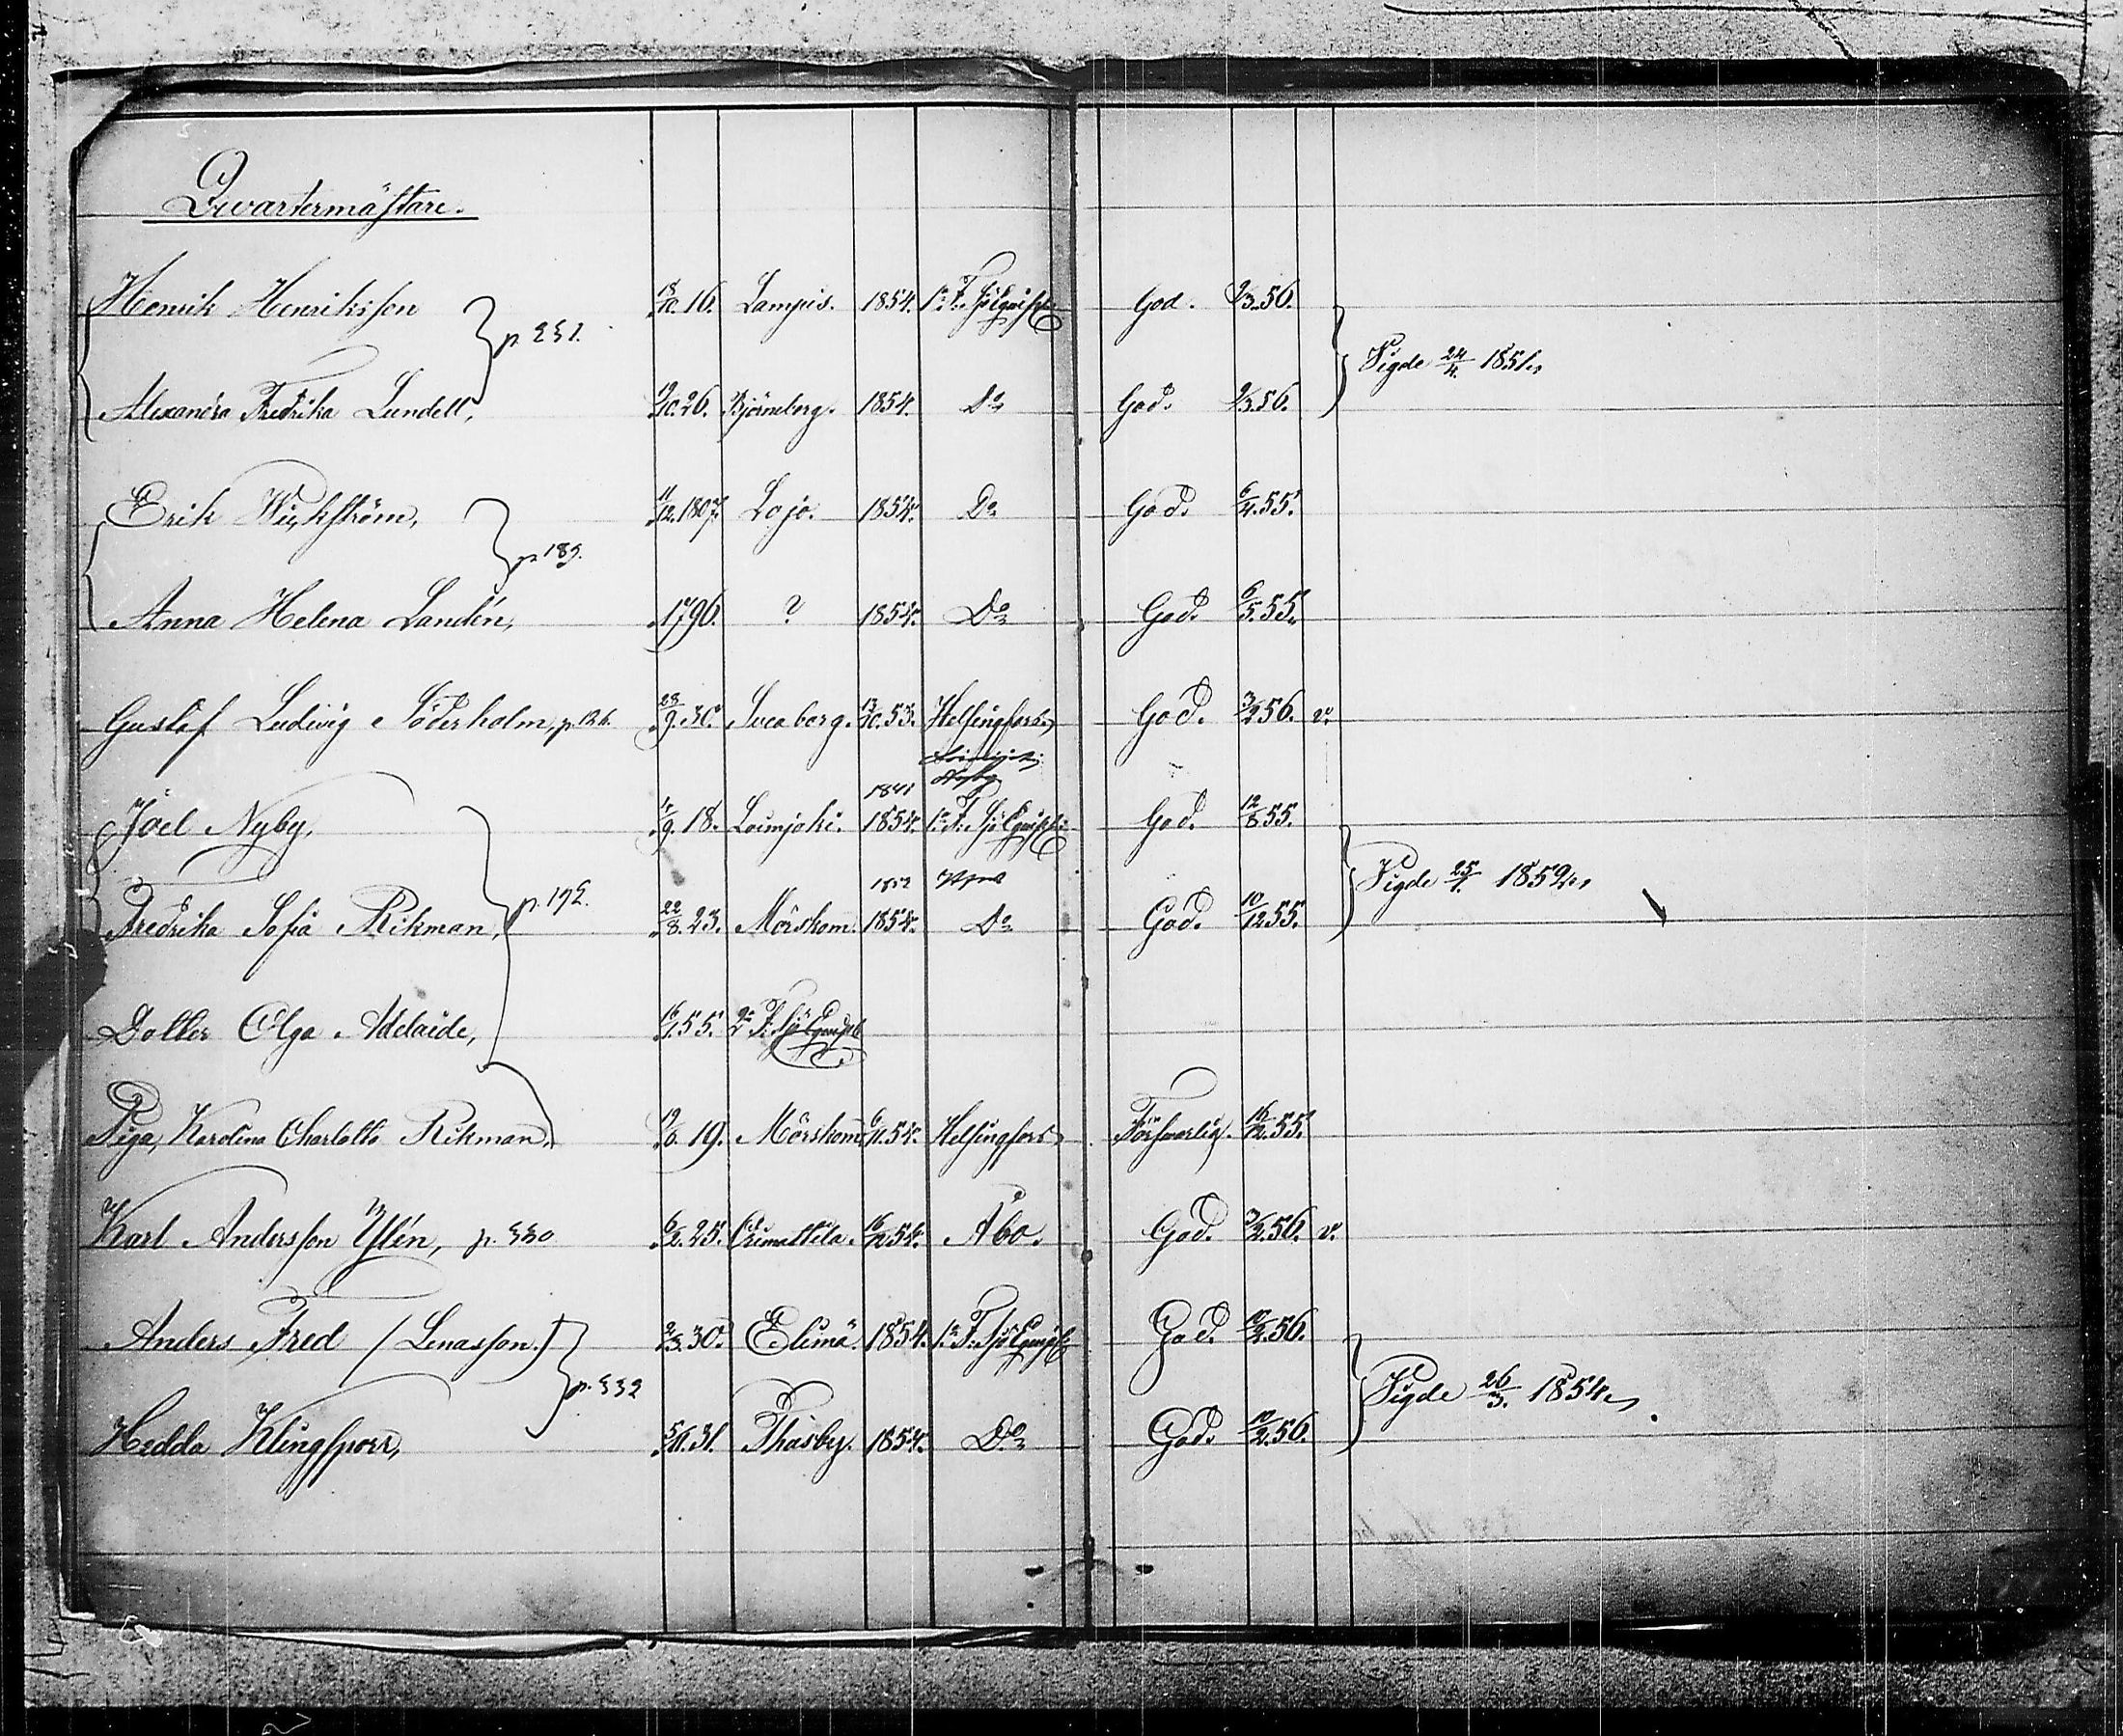 Qwartermästare.
Henrik Henriksson 18/10.16. Lampis. 1854. 1:a F. Sjö Equip: God. 2/3.56.
p. 331. Vigde 24/4. 1851.
Alexandra Fredrika Lundell, 19/10.26. Björneborg. 1854. Do God. 2/3.56.
Erik Wickström, 11/12.1807. Lojo. 1854. Do God. 6/4.55.
p. 189.
Anna Helena Landén, 1796. ? 1854. Do God. 6/5.55.
Gustaf Ludvig Söderholm, p. 126. 28/9.30. Sveaborg. 13/10.53. Helsingfors God. 3/2.56. v.
1841
Joel Nyby, 14/9.18. Loimjoki. 1854. 1:a F. Sjö Equip: God. 12/8.55.
p. 192. 1852 Vigde 25/1. 1852.
Fredrika Sofia Rikman, 22/8.23. Mörskom. 1854. Do God. 10/12.55.
Dotter Olga Adelaide, 16/1.55. 2:a F. Sjö Equip:
Piga, Karolina Charlotta Rikman, 19/6.19. Mörskom. 6/11.54. Helsingfors Försvarlig. 16/12.55.
Karl Andersson Ylén, p. 330 6/2.25. Orimattila. 16/12.54. Åbo. God. 3/2.56. v.
Anders Fred (Lenasson.) 2/3.30. Elimä. 1854. 1:a F. Sjö Equip: God. 10/2.56.
p. 332 Vigde 26/3. 1854.
Hedda Klingsporr, 5/11.31. Thusby. 1854. Do God. 10/2.56.